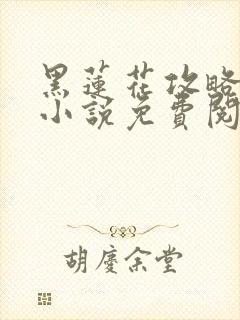 黑蓮花攻略
小說免費閱
胡慶余堂